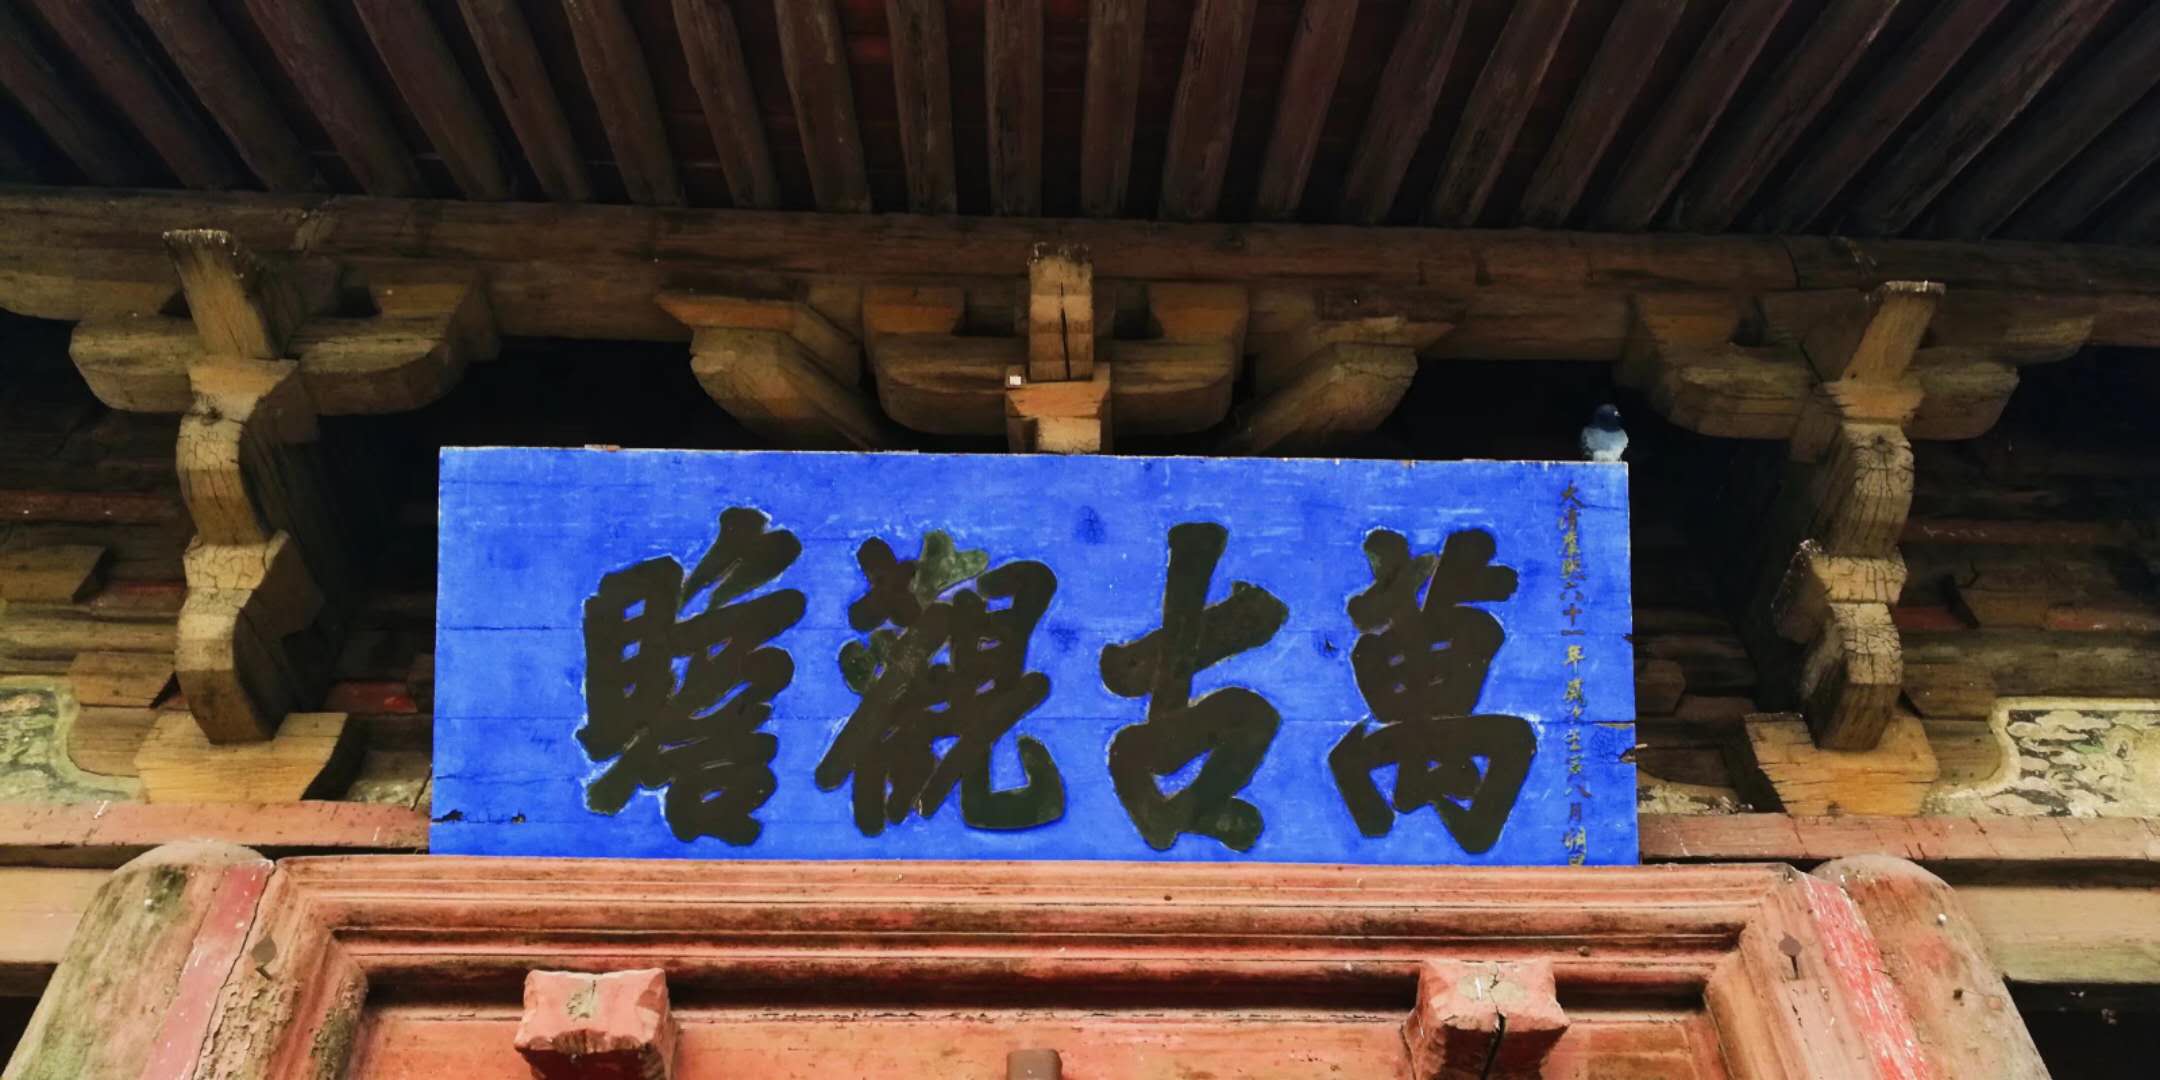 大清康熙六十一年歲次壬寅八月朔日
萬古觀瞻